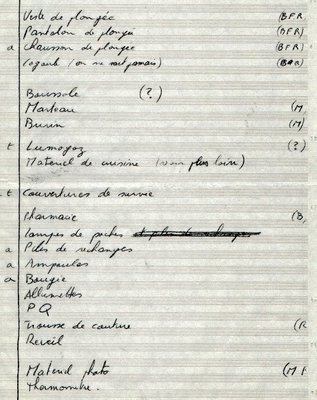 Veste de plongée (BFR)
Pantalon de plongée (BFR)
a Chausson de plongée (BFR)
(on ne sait jamais)
Boussole (?)
Marteau (M
Burin (M)
t Lumogaz (?)
Materiel de cuisine (voir plus loin)
t Couvertures de survie
Pharmacie (B,
lampes de poches et piles de rechanges
a Piles de rechanges
a Ampoules
a Bougie
Allumettes
P Q
trousse de couture (R
Reveil
Materiel photo (M F
thermometre.